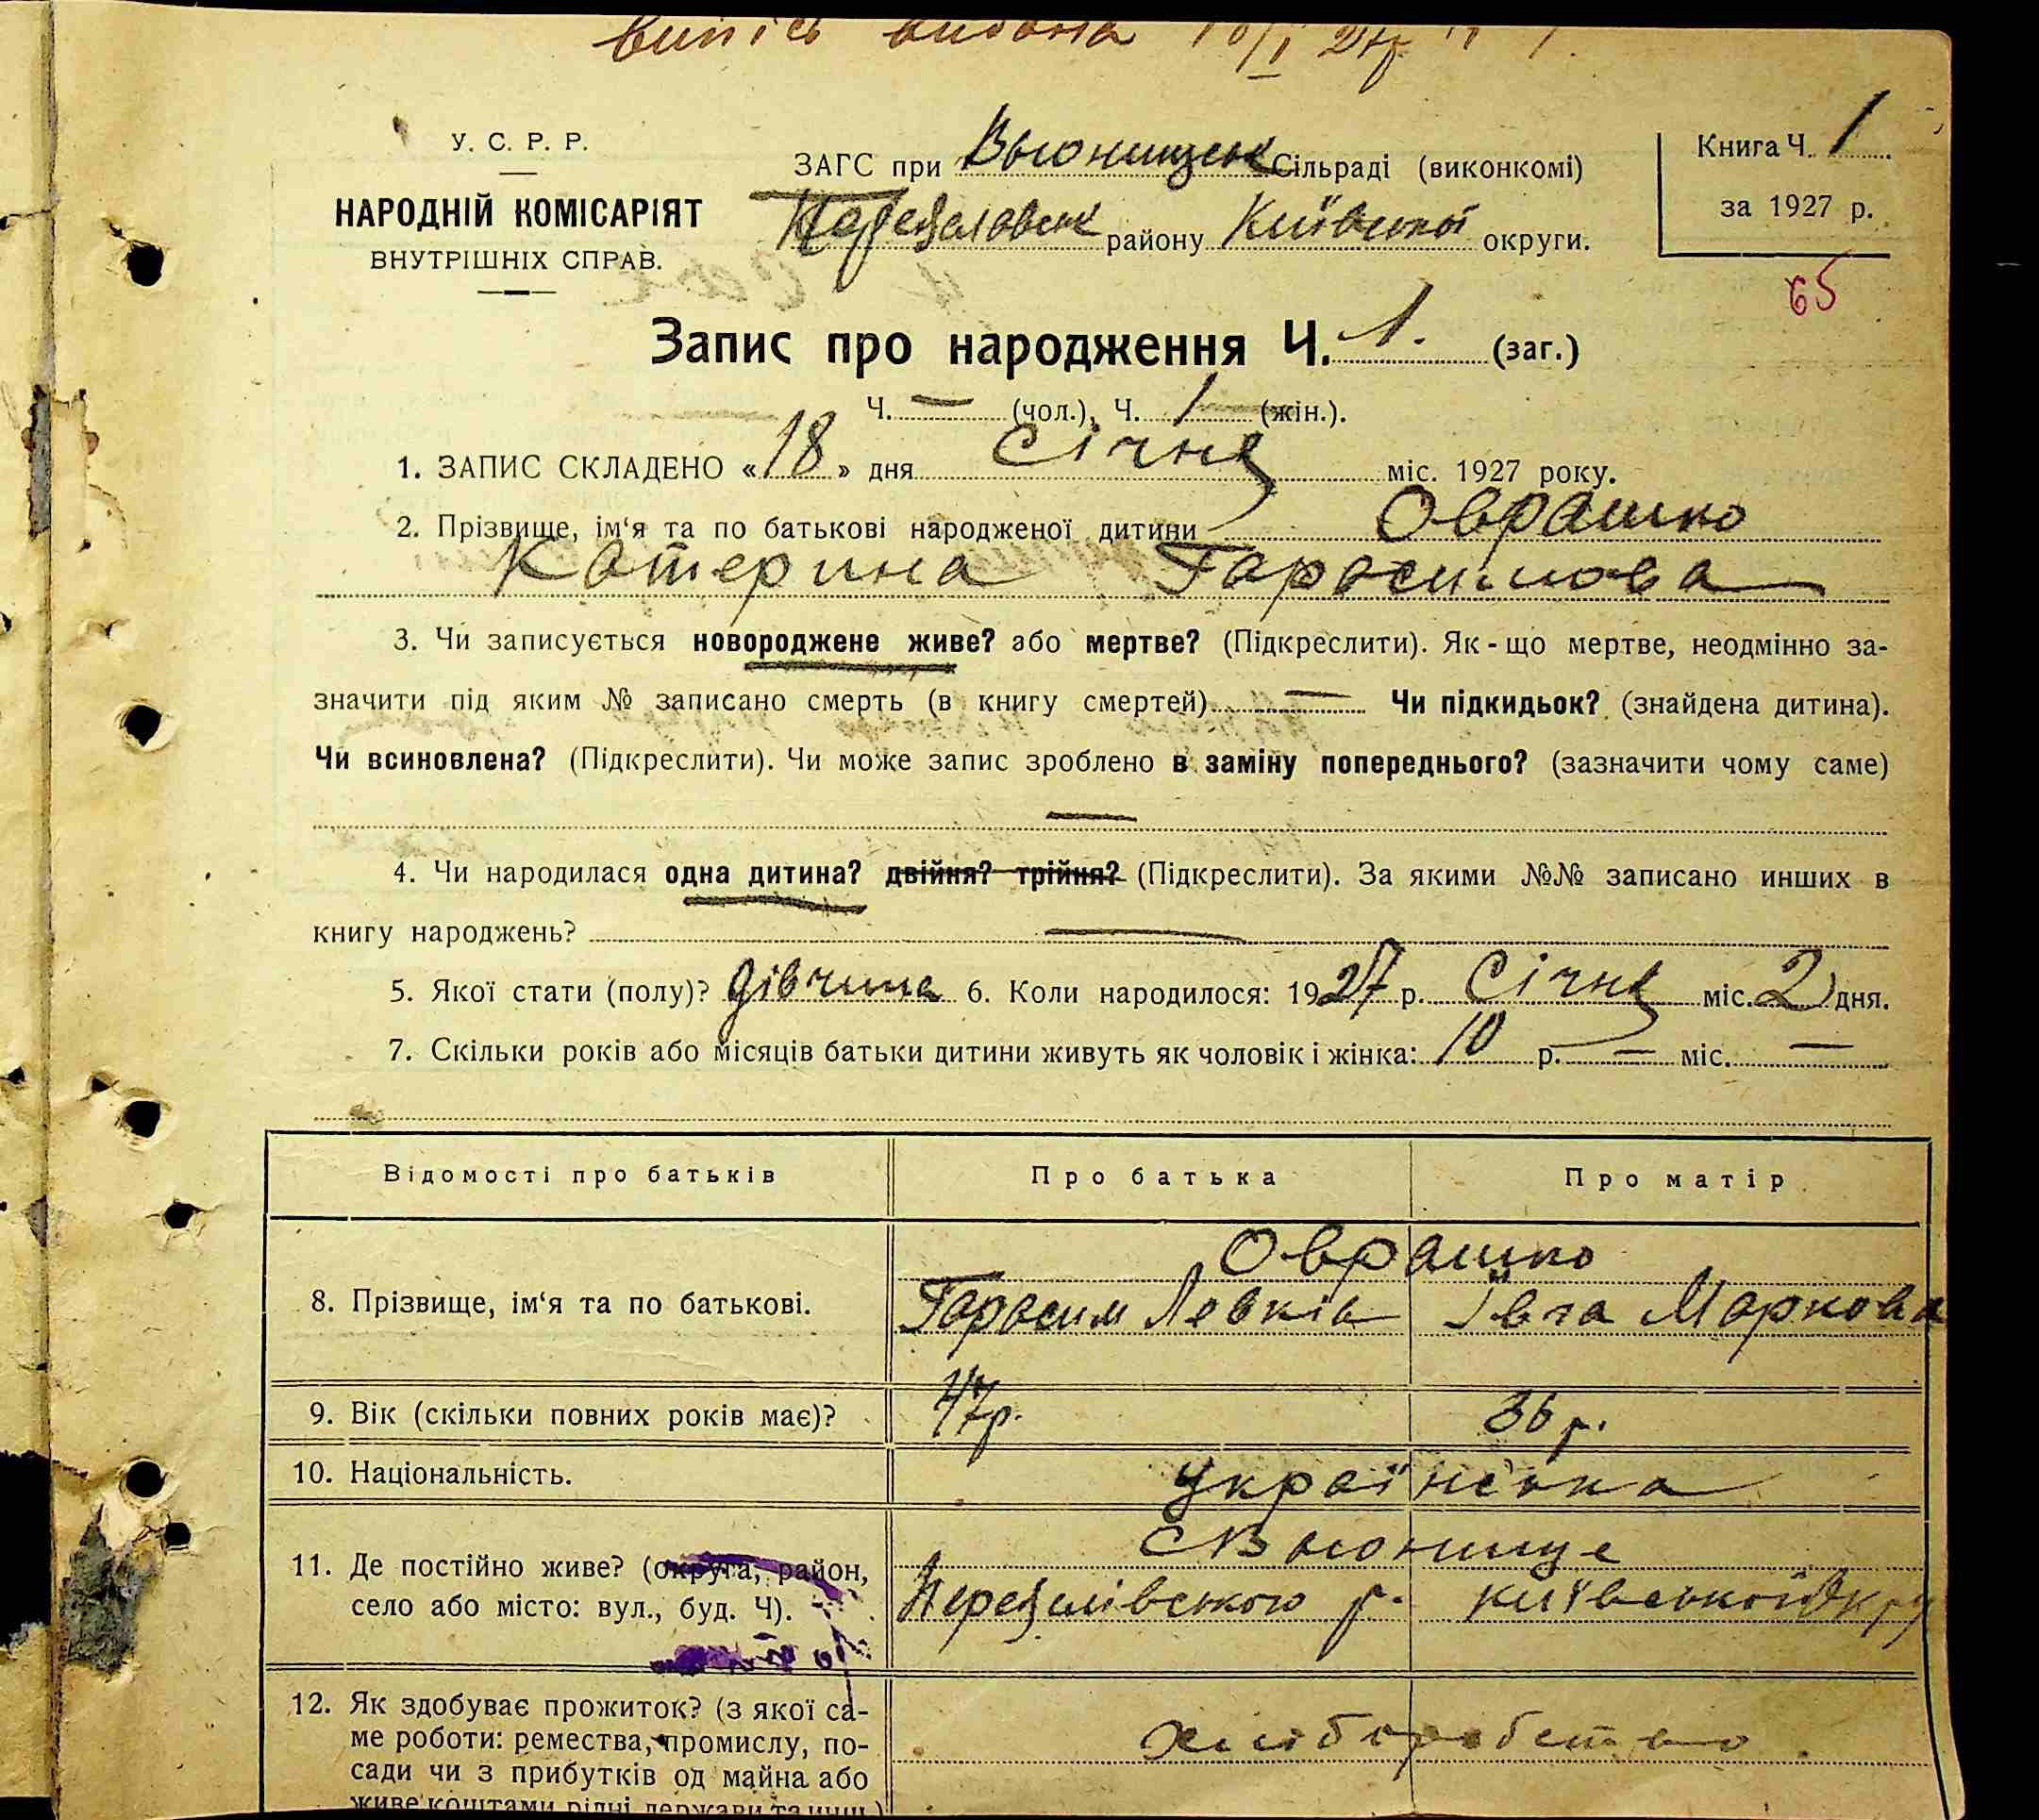 випісь видана 18/I 27р.
У. С. Р. Р.
НАРОДНІЙ КОМІСАРІЯТ
ВНУТРІШНІХ СПРАВ.
ЗАГС при Вьюнищськ Сільраді (виконкомі)
Переяславськ району Київської округи.
Книга Ч. 1
за 1927 р.
65
Запис про народження Ч. 1. (заг.)
Ч. — (чол.), Ч. 1 (жін.).
1. ЗАПИС СКЛАДЕНО «18» дня Січня міс. 1927 року.
2. Прізвище, ім‘я та по батькові народженої дитини Оврашко
Катерина Гарасимова
3. Чи записується новороджене живе? або мертве? (Підкреслити). Як-що мертве, неодмінно за-
значити під яким № записано смерть (в книгу смертей) — Чи підкидьок? (знайдена дитина).
Чи всиновлена? (Підкреслити). Чи може запис зроблено в заміну попереднього? (зазначити чому саме)
—
4. Чи народилася одна дитина? двійня? трійня? (Підкреслити). За якими №№ записано инших в
книгу народжень? —
5. Якої стати (полу)? дівчина 6. Коли народилося: 1927 р. Січня міс. 2 дня.
7. Скільки років або місяців батьки дитини живуть як чоловік і жінка: 10 р. — міс. —
Відомості про батьків Про батька Про матір
Оврашко
8. Прізвище, ім‘я та по батькові. Гарасим Левків Івга Маркова
9. Вік (скільки повних років має)? 47р. 36 р.
10. Національність. Українська
с Вьюнище
11. Де постійно живе? (округа, район,
село або місто: вул., буд. Ч). Переяслівського р. київської Окру
12. Як здобуває прожиток? (з якої са-
ме роботи: ремества, промислу, по- хліборобство
сади чи з прибутків од майна або
живе коштами рідні, держави та инш.)